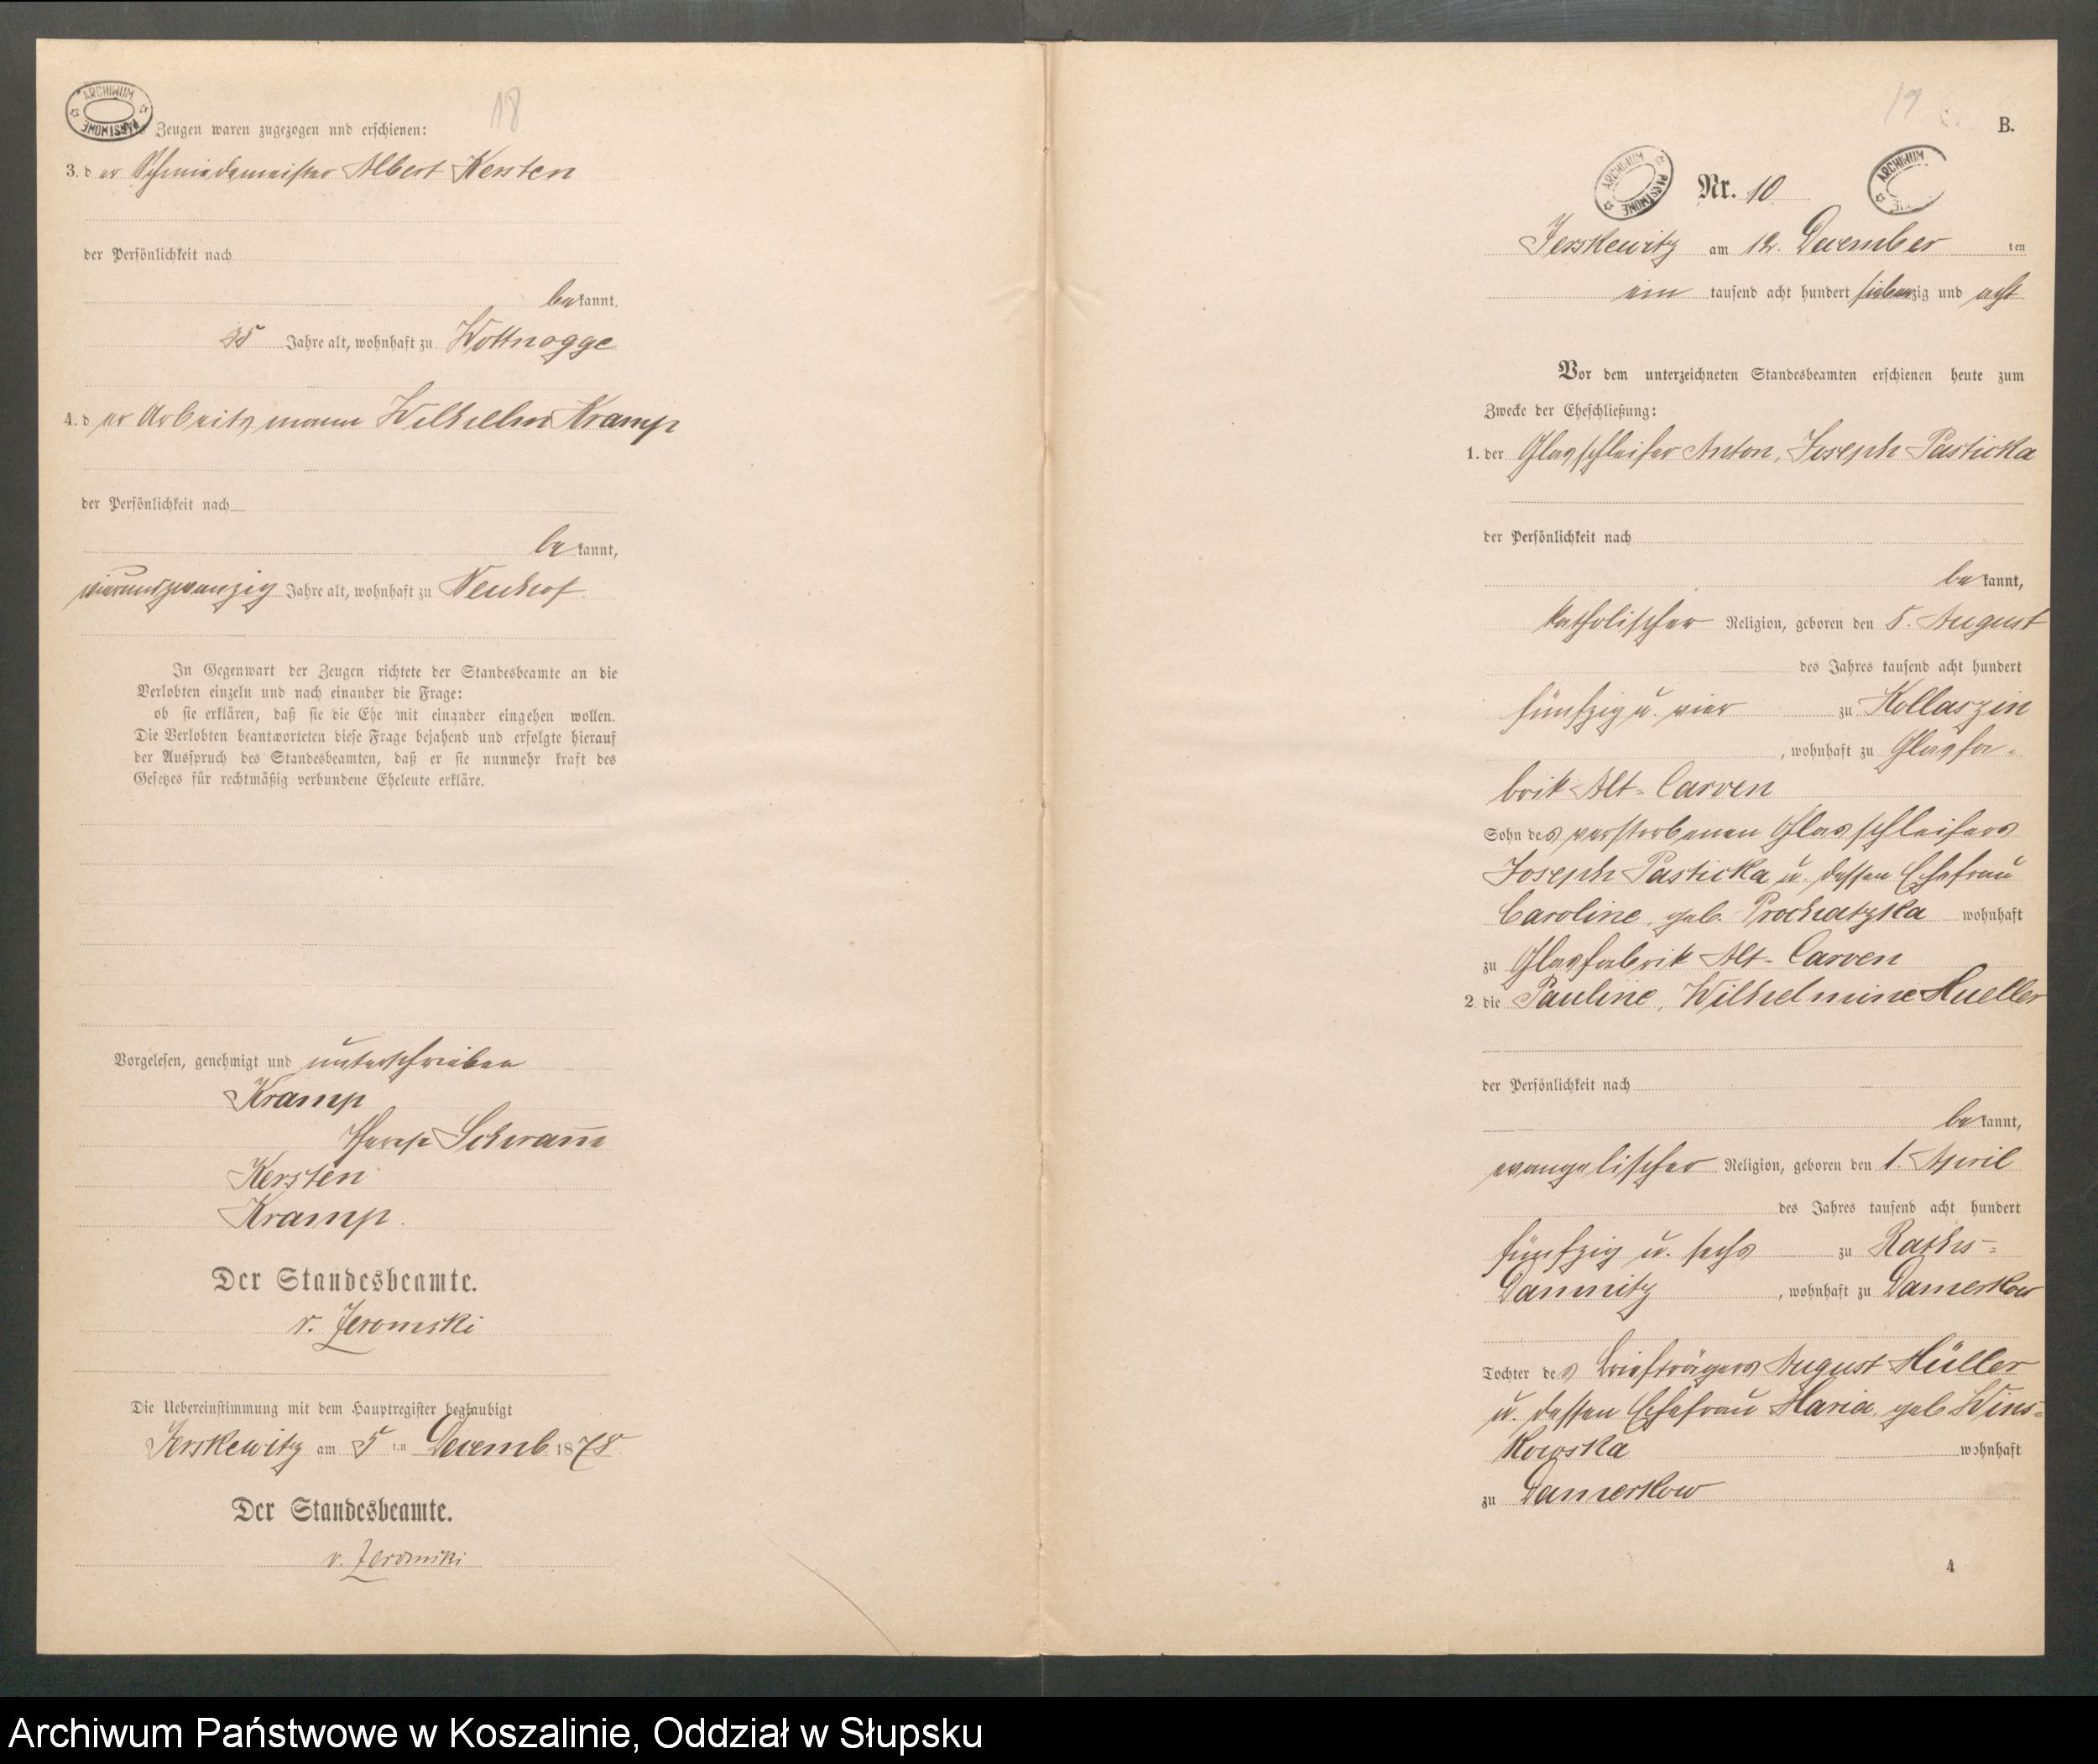 ARCHIWUM PAŃSTWOWE
18
Zeugen waren zugezogen und erschienen:
3. der Schmiedemeister Albert Kersten
der Persönlichkeit nach
bekannt,
Jahre alt, wohnhaft zu Wottnogge
4. der Arbeitsmann Wilhelm Kramp
der Persönlichkeit nach
bekannt,
vierundzwanzig Jahre alt, wohnhaft zu Neuhof.
In Gegenwart der Zeugen richtete der Standesbeamte an die
Verlobten einzeln und nach einander die Frage:
ob sie erklären, daß sie die Ehe mit einander eingehen wollen.
Die Verlobten beantworteten diese Frage bejahend und erfolgte hierauf
der Ausspruch des Standesbeamten, daß er sie nunmehr kraft des
Gesetzes für rechtmäßig verbundene Eheleute erkläre.
Vorgelesen, genehmigt und unterschrieben
Kramp
Therese Schramm
Kersten
Kramp.
Der Standesbeamte.
v. Zeromski
Die Uebereinstimmung mit dem Hauptregister beglaubigt
Jerskewitz am 5 ten Decemb. 1878.
Der Standesbeamte.
v. Zeromski
19
B.
ARCHIWUM PAŃSTWOWE
Nr. 10
ARCHIWUM
Jerskewitz am 12. December ten
ein tausend acht hundert siebenzig und acht
Vor dem unterzeichneten Standesbeamten erschienen heute zum
Zwecke der Eheschließung:
1. der Glasschleifer Anton, Joseph Pasticka
der Persönlichkeit nach
bekannt,
katholischer Religion, geboren den 5. August
des Jahres tausend acht hundert
fünfzig u. vier zu Kollaszin
, wohnhaft zu Glasfa-
brik Alt-Carven
Sohn des verstorbenen Glasschleifers
Joseph Pasticka u. dessen Ehefrau
Caroline, geb. Prochatzka wohnhaft
zu Glasfabrik Alt-Carven
2. die Pauline, Wilhelmine Mueller
der Persönlichkeit nach
bekannt,
evangelischer Religion, geboren den 1. April
des Jahres tausend acht hundert
fünfzig u. sechs zu Raths-
Damnitz , wohnhaft zu Damerkow
Tochter des Briefträgers August Müller
u. dessen Ehefrau Maria, geb. Wins-
kowska wohnhaft
zu Damerkow
4
Archiwum Państwowe w Koszalinie, Oddział w Słupsku